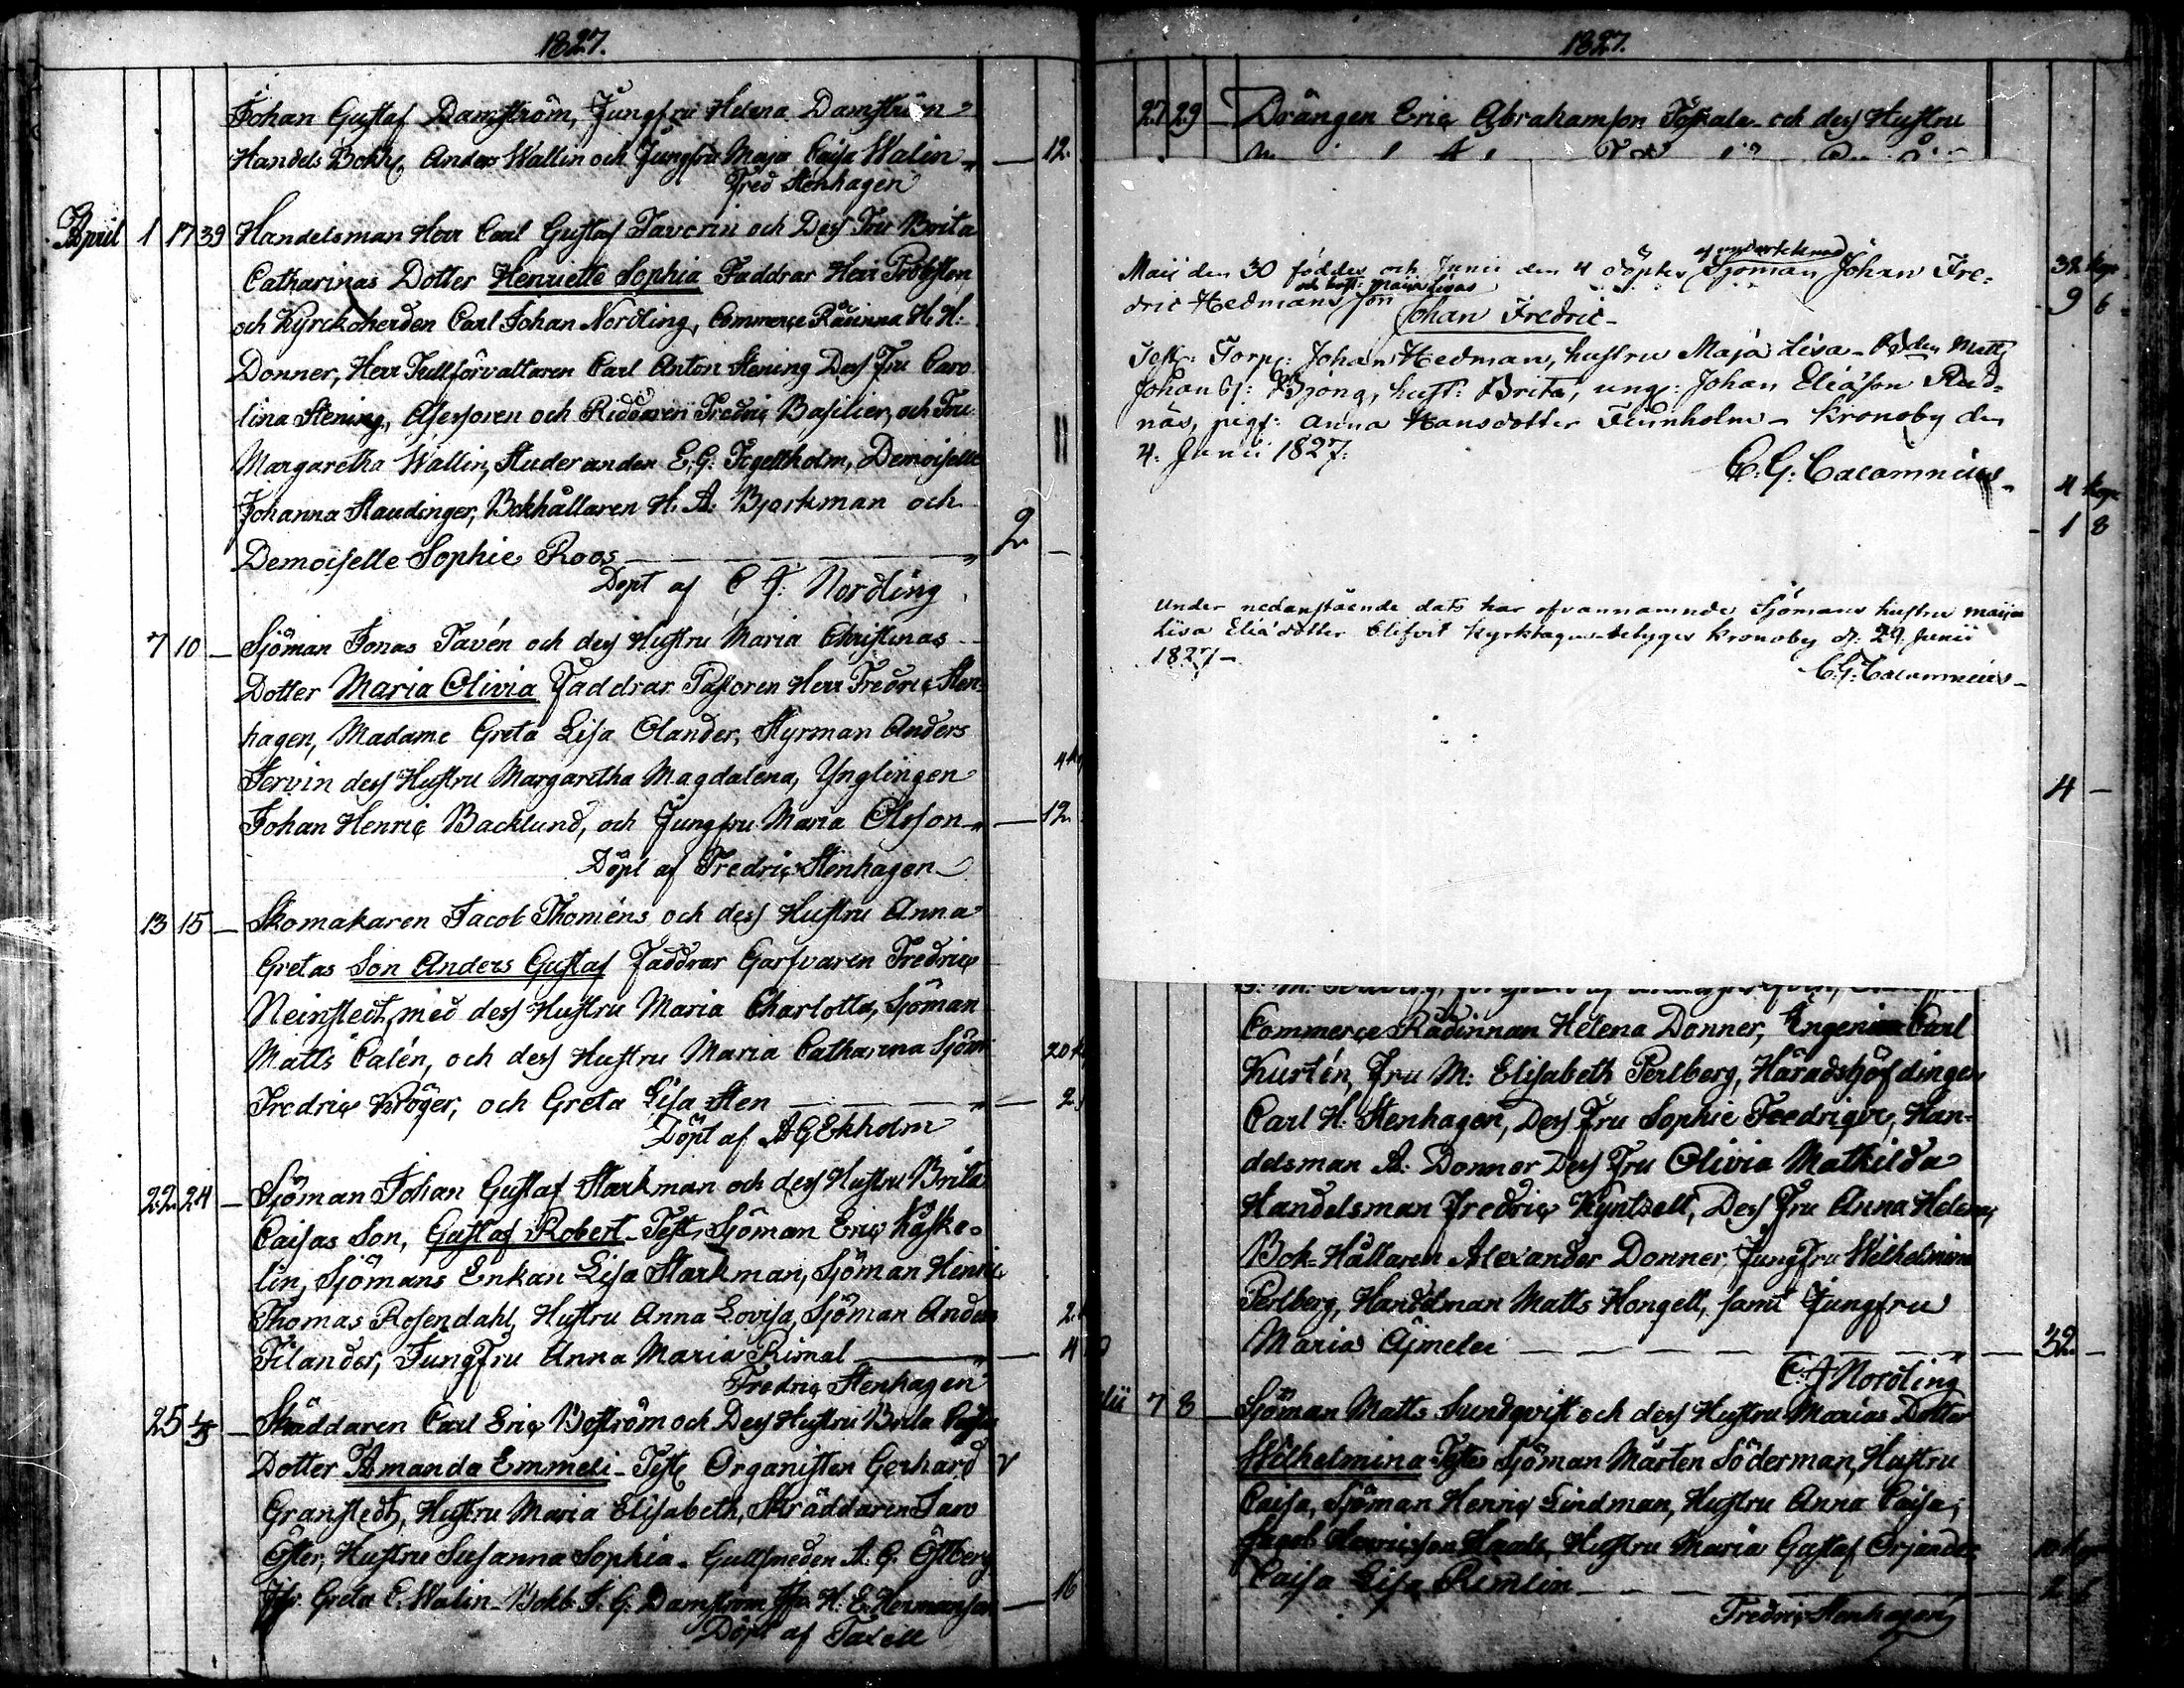 1827.
Johan Gustaf Damström, Jungfru Helena Damström
Handels Bokh, Anders Wallin och Jungfru Maja Caisa Walin — 12.
Fred Stenhagen
April 1 17 39 Handelsman Herr Carl Gustaf och Dess Fru Brita
Catharinas Dotter Henriette Sophia Faddrar Herr Probsten
och Kyrckoherden Carl Johan Nordling, Commerce Rådinna H. H.
Donner, Herr Tullförvaltaren Carl Anton Stening Dess Fru Caro
lina Stening, Assessoren och Riddaren Fredric Basilier, och Fru
Margaretha Wallin, Studeranden E. G. Tegeltholm, Demoiselle
Johanna Staudinger, Bokhållaren H. A. Bjorkman och
Demoiselle Sophie Roos — 2 —
Döpt af C J: Nordling
7 10 — Sjöman Jonas Tavén och dess Hustru Maria Christinas
Dotter Maria Olivia Faddrar Pastoren Herr Fredric Sten
hagen, Madame Greta Lisa Olander, Styrman Anders
Servin dess Hustru Margaretha Magdalena, Ynglingen
Johan Henric Backlund, och Jungfru Maria Olsson — 12
Döpt af Fredric Stenhagen
13 15 — Skomakaren Jacob Thoméns och dess Hustru Anna
Gretas Son Anders Gustaf Faddrar Garfvaren Fredric
Neinstedt, med dess Hustru Maria Charlotta, Sjöman
Matts Calén, och dess Hustru Maria Catharina Sjöm 20
Fredric Kröger, och Greta Lisa Sten — 2
Döpt af A G Ekholm
22 24 — Sjöman Johan Gustaf Starkman och dess Hustru Brita
Caisas Son, Gustaf Robert — Test, Sjöman Eric Käske-
lin, Sjömans Enkan Lisa Starkman, Sjöman Henric
Thomas Rosendahl, Hustru Anna Lovisa, Sjöman Anders 2
Filander, Jungfru Anna Maria Rimal — 4
Fredric Stenhagen
25 — Skräddaren Carl Eric Boström och Dess Hustru Brita Caisas
Dotter Amanda Emmeli — Test Organisten Gerhard
Granstedt, Hustru Maria Elisabeth, Skräddaren
Öster, Hustru Susanna Sophia. Gullsmeden A. G. Östberg
Jfr. Greta C. Walin — Bokh. J. G. Damström Jfr. H. E. Hermanson — 16
Döpt af Taxell
1827.
27 29 — Drängen Eric Abrahamson och dess Hustru
af undertecknad
Maii den 30 föddes och Junii den 4 döptes Sjöman Johan Fre-
och hust: Maija Lisas
dric Hedmans Son Johan Fredric —
Test: Torp: Johan Hedman, hustru Maja Lisa — Matts
Johans: Björng, hust: Brita, ungk: Johan Eliason Rud-
näs, pigf: Anna Hansdotter Finnholm — Kronoby den
4. Junii 1827.
C. G. Calamnius
Under nedanstående dato har ofvannämnde Sjömans hustru Maija
Lisa Eliædotter blifvit kyrktagen — betygar Kronoby d: 29 Junii
1827 —
C. G. Calamnius —
32
9 6
4
1 8
4 —
Commerce Rådinnan Helena Donner, Carl
Kurtén, Fru M: Elisabeth Perlberg, Häradshöfdingen
Carl H. Stenhagen, Dess Fru Sophie Fredrique, Han-
delsman A: Donner Dess Fru Olivia Mathilda
Handelsman Fredric Kyntzell, Dess Fru Anna Helena,
Bok-Hållaren Alexander Donner, Jungfru Wilhelmina
Perlberg, Handelman Matts Hongell, samt Jungfru
Maria — 32 —
C. J Nordling
7 8 — Sjöman Matts Sundqvist och dess Hustru Marias Dotter
Wilhelmina Test Sjöman Mårten Söderman, Hustru
Caisa, Sjöman Henric Lindman, Hustru Anna Caisa,
Jacob Hustru Maria Gustaf
Caisa Lisa Remlin — 2
Fredric Stenhagen